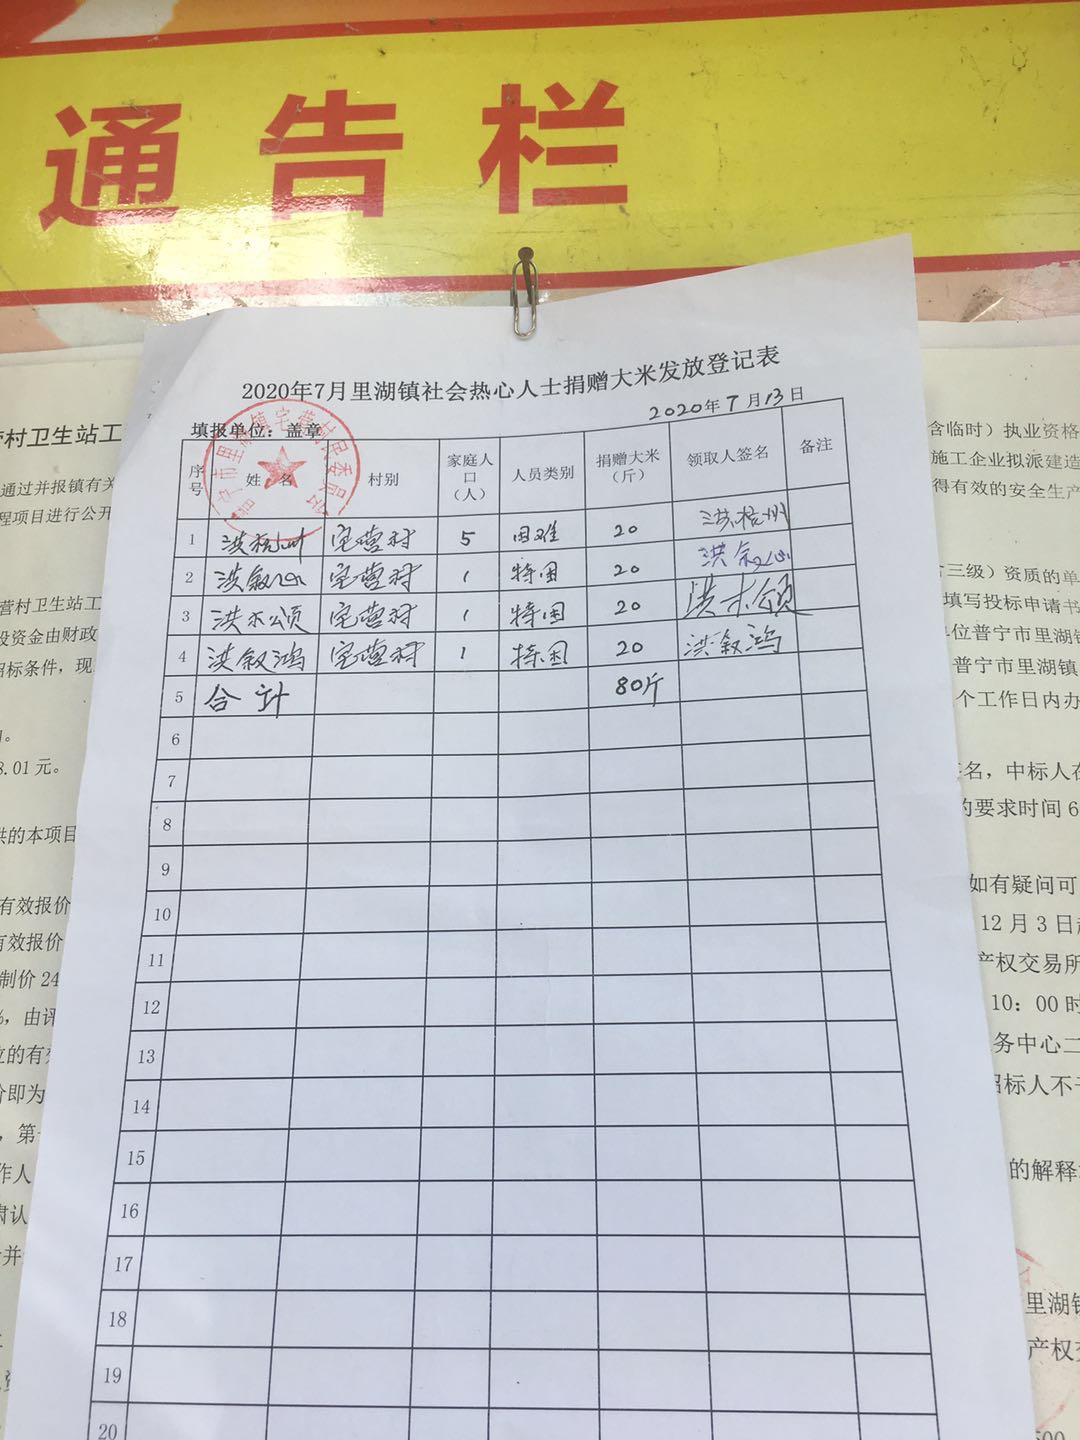 通告栏
2020年7月里湖镇社会热心人士捐赠大米发放登记表
2020年7月13日
填报单位：盖章
普宁市里湖镇宅营村民委员会
序号 姓名 村别 家庭人口（人） 人员类别 捐赠大米（斤） 领取人签名 备注
1 洪梧州 宅营村 5 困难 20 洪梧州
2 洪叙心 宅营村 1 特困 20 洪叙心
3 洪木颂 宅营村 1 特困 20 洪木颂
4 洪叙鸿 宅营村 1 特困 20 洪叙鸿
5 合计 80斤
6
7
8
9
10
11
12
13
14
15
16
17
18
19
20
营村卫生站工
通过并报镇有关
程项目进行公开
营村卫生站工
投资金由财政
招标条件，现
8.01元。
供的本项目
有效报价
有效报价
制价24
%，由评
位的有效
分即为
，第一
作人
肃认
并
含临时）执业资格
施工企业拟派建造
得有效的安全生产
合三级）资质的单
填写投标申请书
单位普宁市里湖镇
普宁市里湖镇
个工作日内办
签名，中标人在
的要求时间6
如有疑问可
12月3日起
产权交易所
10：00时
务中心二
招标人不
的解释
里湖镇
产权交